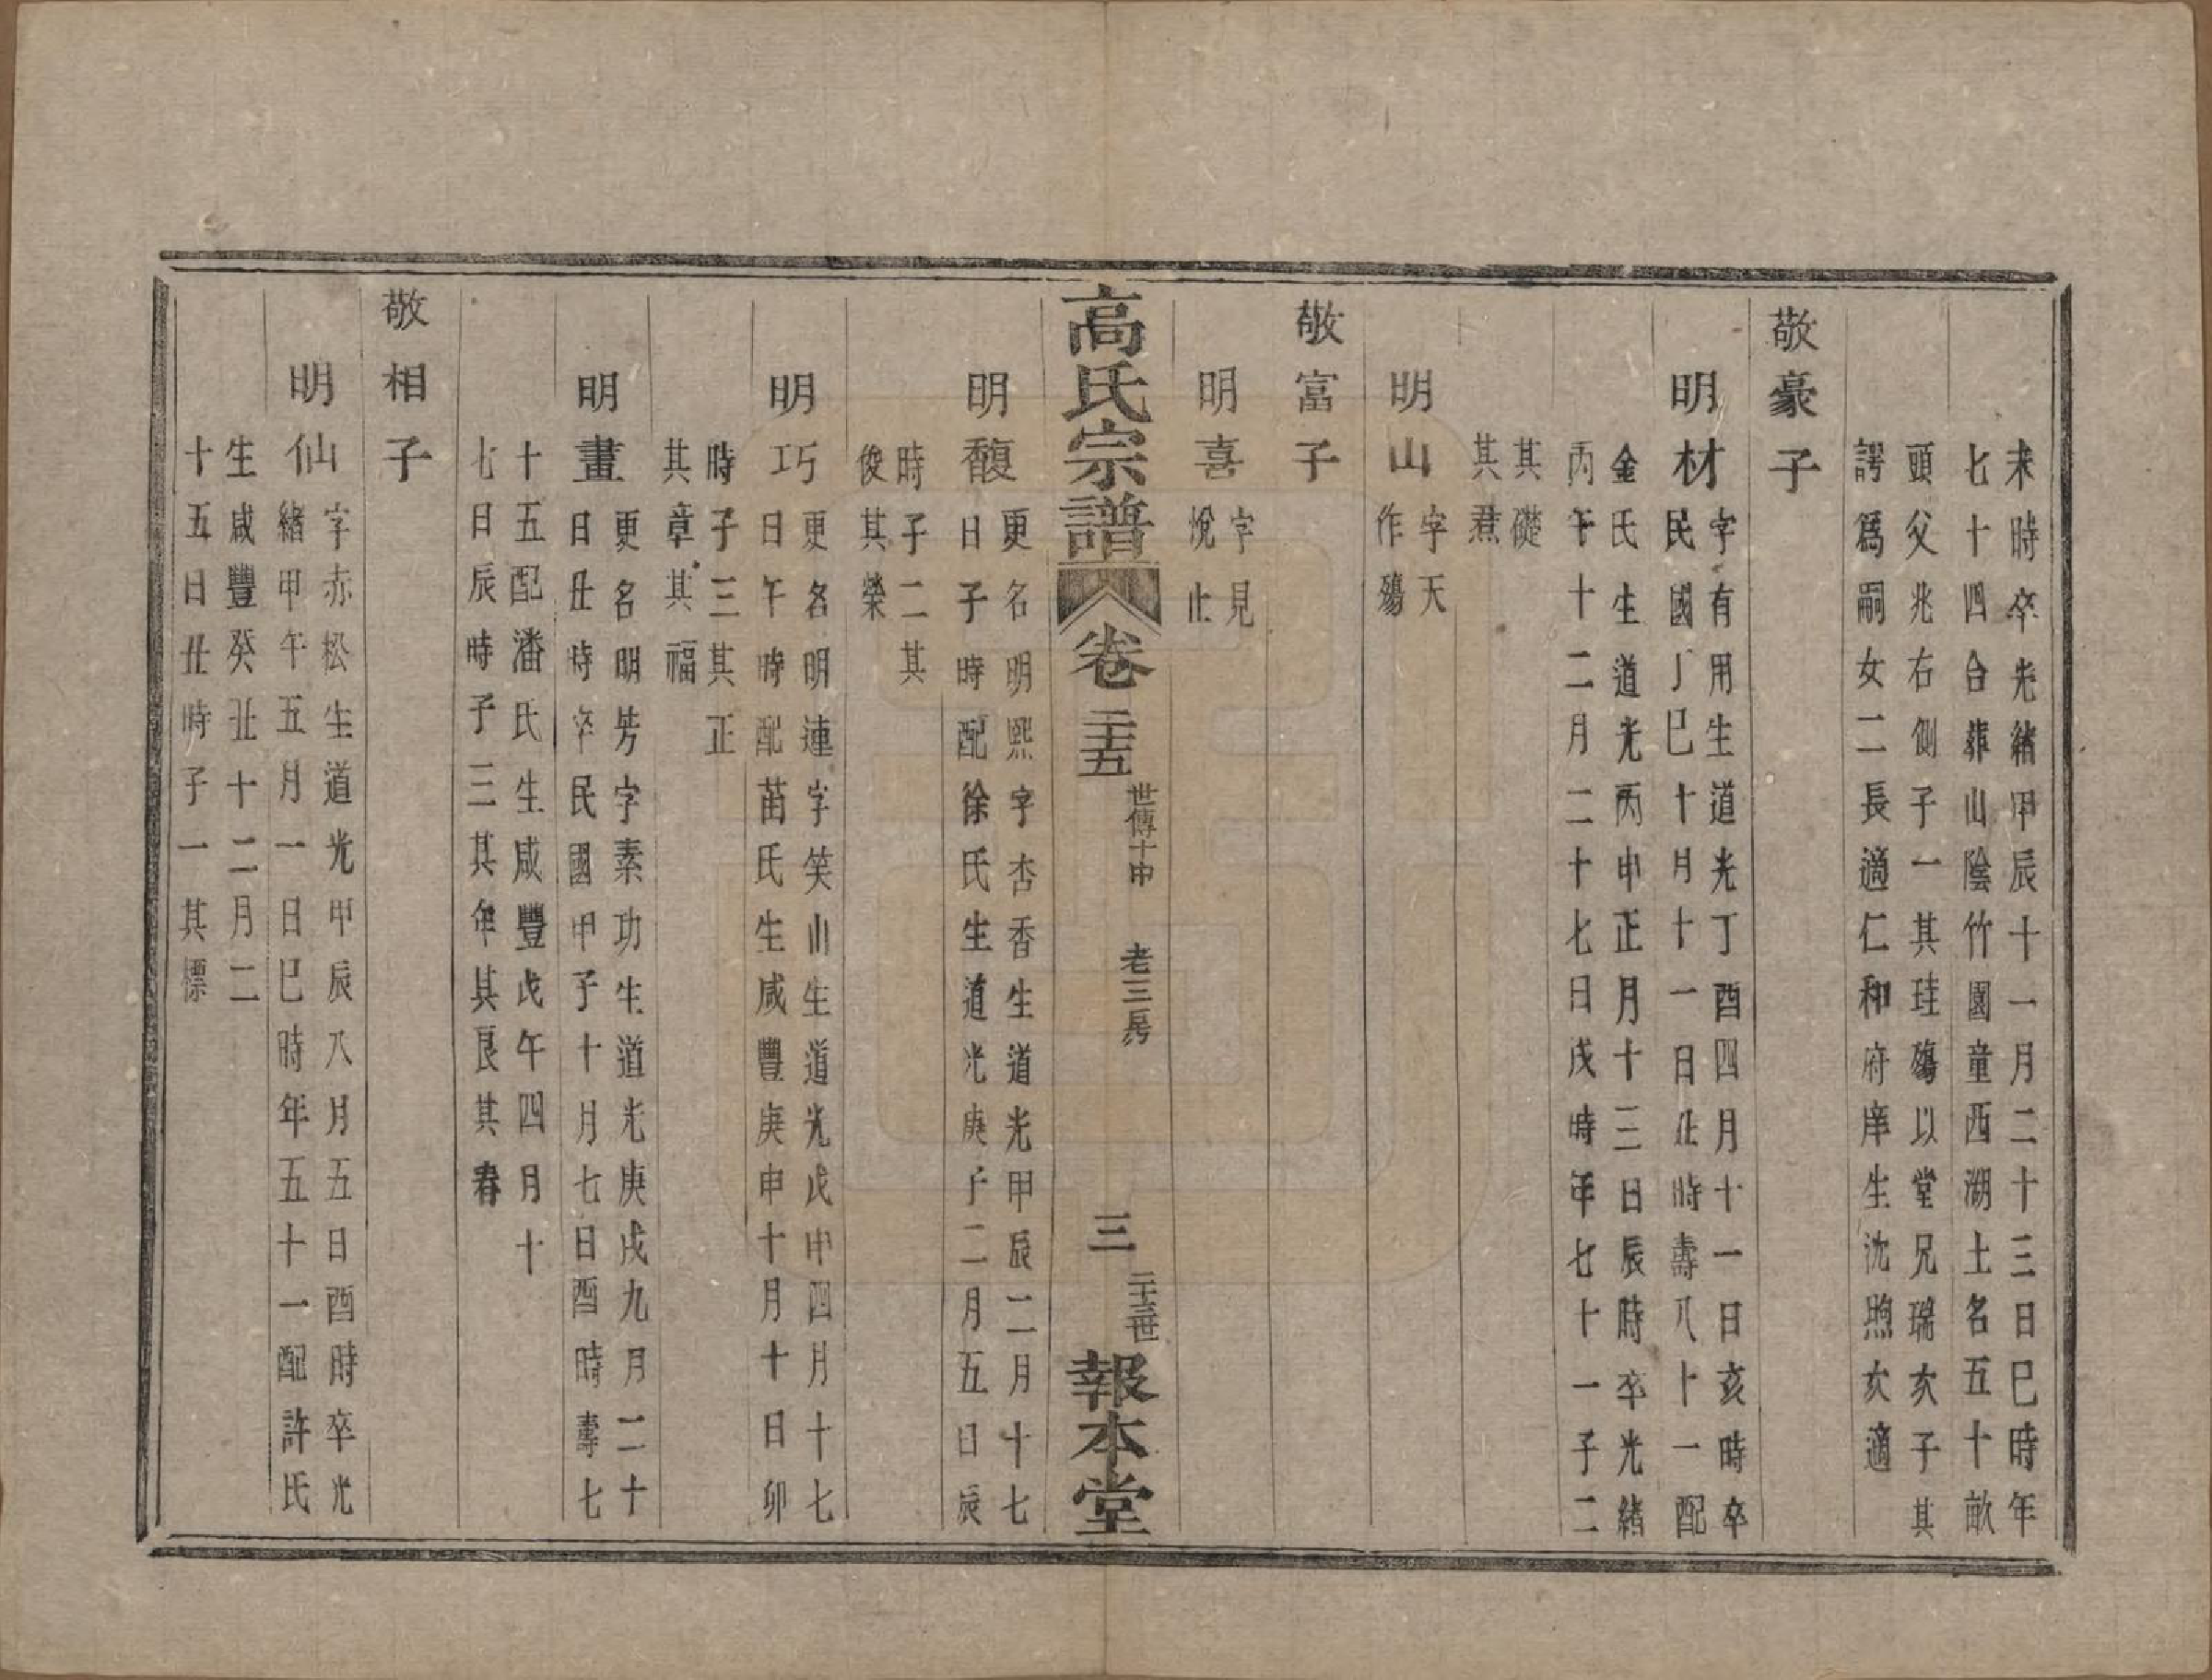 未時卒光緒甲辰十一月二十三日巳時年
七十四合葬山陰竹園童西湖土名五十畝
頭父兆右側子一其珪殤以堂兄瑞次子其
諤爲嗣女二長適仁和府庠生沈煦次適
敬豪子
明材
字有用生道光丁酉四月十一日亥時卒
民國丁巳十月十一日丑時壽八十一配
金氏生道光丙申正月十三日辰時卒光緒
丙午十二月二十七日戌時年七十一子二
其礎
其焄
明山
字天
作殤
敬富子
明喜
字見
悅止
高氏宗譜 卷二十五 世傳十中 老三房 三 二十三世 報本堂
明馥
更名明熙字杏香生道光甲辰二月十七
日子時配徐氏生道光庚子二月五日辰
時子二其
俊其榮
明巧
更名明連字笑山生道光戊申四月十七
日午時配苗氏生咸豐庚申十月十日卯
時子三其正
其章其福
明畫
更名明芳字素功生道光庚戌九月二十
日丑時卒民國甲子十月七日酉時壽七
十五配潘氏生咸豐戊午四月十
七日辰時子三其年其良其春
敬相子
明仙
字赤松生道光甲辰八月五日酉時卒光
緒甲午五月一日巳時年五十一配許氏
生咸豐癸丑十二月二
十五日丑時子一其標